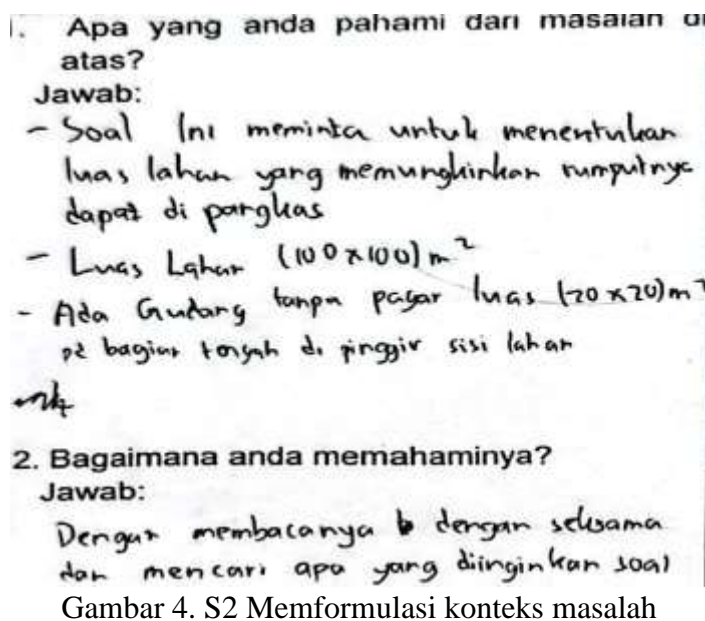 1. Apa yang anda pahami dari masalah di
atas?
Jawab:
- Soal Ini meminta untuk menentukan
luas lahan yang memungkinkan rumputnya
dapat di pangkas
- Luas Lahan (100 x 100) m²
- Ada Gudang tanpa pagar luas (20 x 20) m²
pd bagian tengah di pinggir sisi lahan
2. Bagaimana anda memahaminya?
Jawab:
Dengan membacanya dengan seksama
dan mencari apa yang diinginkan soal
Gambar 4. S2 Memformulasi konteks masalah